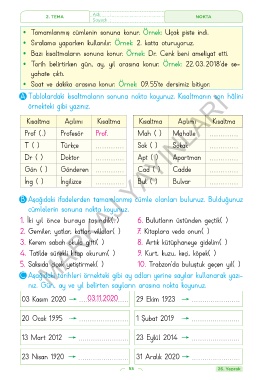 2. TEMA
NOKTA
Tamamlanmış cümlenin sonuna konur. Örnek: Uçak piste indi.
Sıralama yaparken kullanılır. Örnek: 2. katta oturuyoruz.
Bazı kısaltmaların sonuna konur. Örnek: Dr. Cenk beni ameliyat etti.
Tarih belirtirken gün, ay, yıl arasına konur. Örnek: 22.03.2018'de seyahate çıktı.
Saat ve dakika arasına konur. Örnek: 09.55'te dersimiz bitiyor.
A Tablolardaki kısaltmaların sonuna nokta koyunuz. Kısaltmanın son hâlini örnekteki gibi yazınız.
Kısaltma Açılımı Kısaltma Kısaltma Açılımı Kısaltma
Prof (.) Profesör Prof. Mah ( ) Mahalle
T ( ) Türkçe Sok ( ) Sokak
Dr ( ) Doktor Apt ( ) Apartman
Gön ( ) Gönderen Cad ( ) Cadde
İng ( ) İngilizce Bul ( ) Bulvar
B Aşağıdaki ifadelerden tamamlanmış cümle olanları bulunuz. Bulduğunuz cümlelerin sonuna nokta koyunuz.
1. İki yıl önce buraya taşındık( )
2. Gemiler, yatlar, katlar, villalar( )
3. Kerem sabah okula gitti( )
4. Tatilde sürekli kitap okurum( )
5. Saksıda çiçek yetiştirmek( )
6. Bulutların üstünden geçtik( )
7. Kitaplara veda onun( )
8. Artık kütüphaneye gidelim( )
9. Kurt, kuzu, keçi, köpek( )
10. Trabzon'da buluştuk geçen yıl( )
C Aşağıdaki tarihleri örnekteki gibi ay adları yerine sayılar kullanarak yazınız. Gün, ay ve yıl belirten sayıların arasına nokta koyunuz.
03 Kasım 2020 → 03.11.2020
29 Ekim 1923 →
20 Ocak 1995 →
1 Şubat 2019 →
13 Mart 2012 →
23 Eylül 2014 →
23 Nisan 1920 →
31 Aralık 2020 →